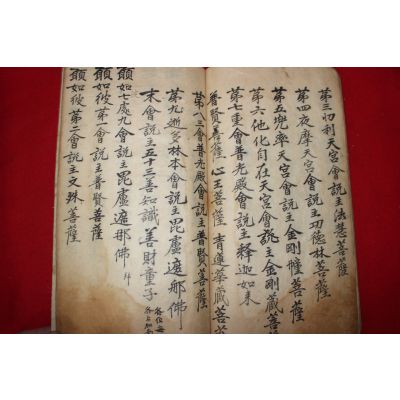 第三忉利天宮會說主法慧菩薩
第四夜摩天宮會說主功德林菩薩
第五兜率天宮會說主金剛幢菩薩
第六他化自在天宮會說主金剛藏菩薩
第七重會普光殿會說主釋迦如來
普賢菩薩 心王菩薩 青蓮華藏菩
第八三會普光殿會說主普賢菩薩
第九逝多林本會說主毘盧遮那佛
末會說主五十三善知識 善財童子
願如七處九會說主毘盧遮那佛
願如彼第一會說主普賢菩薩
願如彼第二會說主文殊菩薩